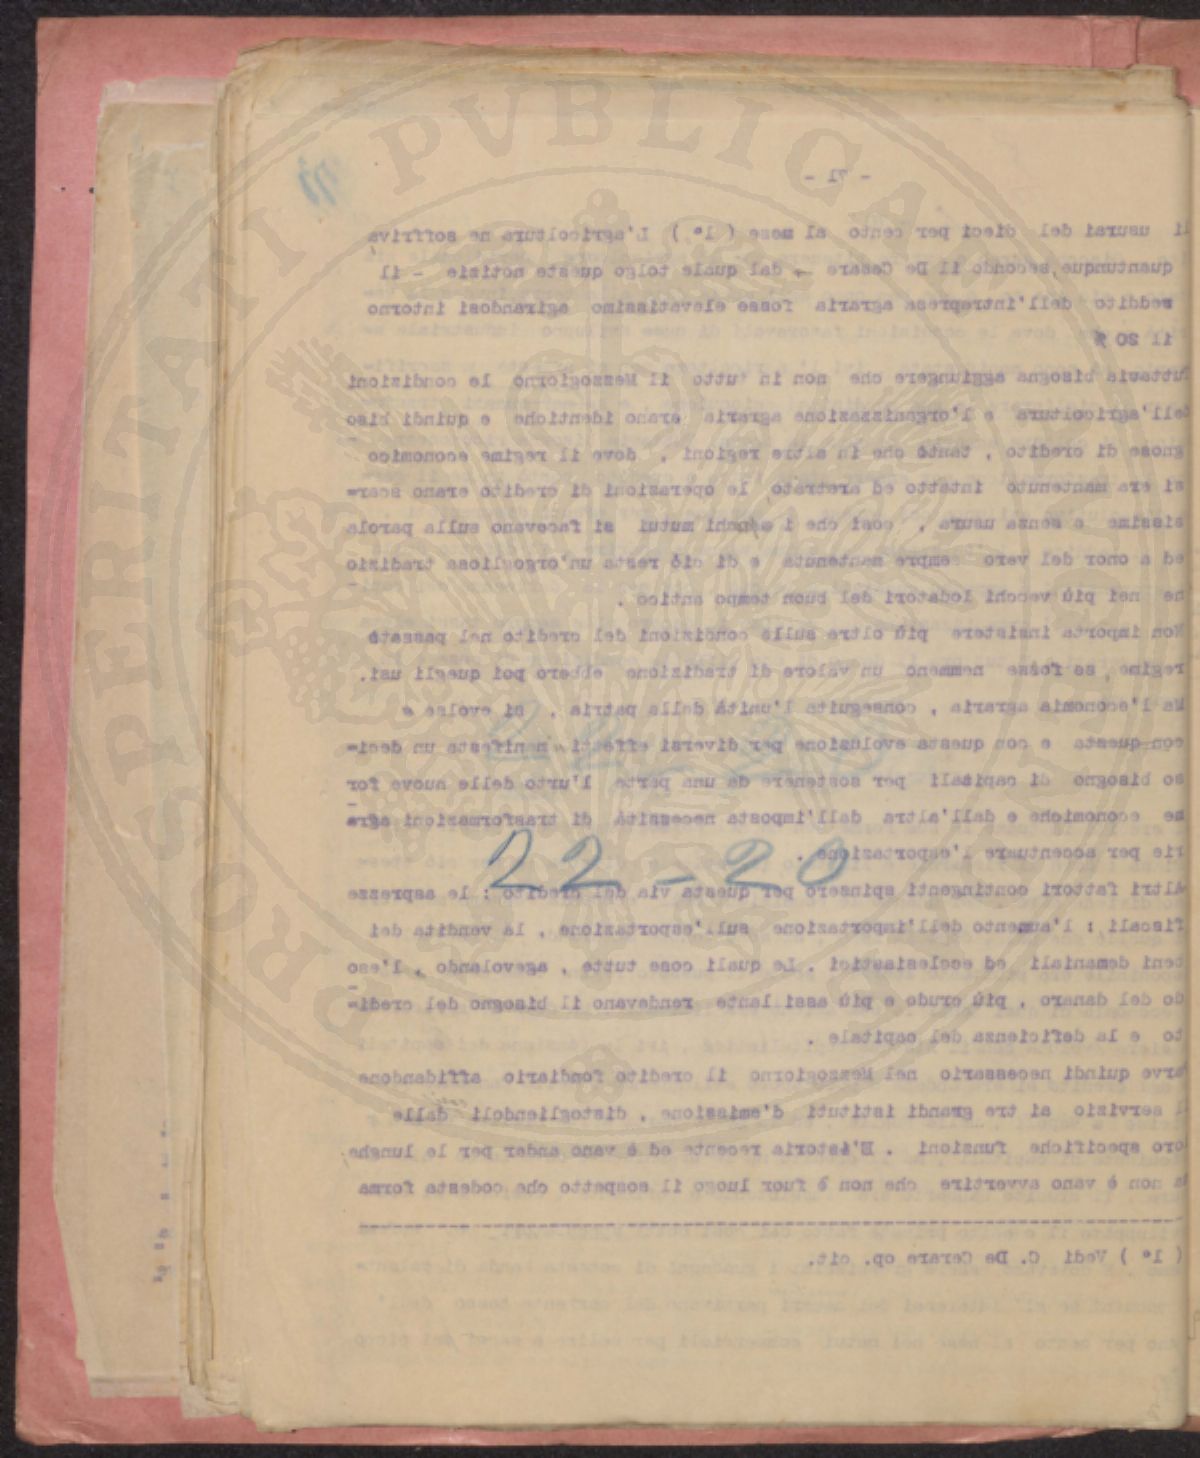 - 71 -
li usurai del dieci per cento al mese ( 1° ) L'agricoltura ne soffriva
quantunque, secondo il De Cesare - dal quale tolgo queste notizie - il
reddito dell'intrepresa agraria fosse elevatissimo agirandosi intorno
il 20 %
Tuttavia bisogna aggiungere che non in tutto il Mezzogiorno le condizioni
dell'agricoltura e l'organizzazione agraria erano identiche e quindi biso
gnose di credito , tanto che in altre regioni , dove il regime economico
si era mantenuto intatto ed arretrato le operazioni di credito erano scar=
sissime e senza usura , così che i mutui si facevano sulla parola
ed a onor del vero sempre mantenuta e di ciò resta un'orgogliosa tradizio
ne nei più vecchi lodatori del buon tempo antico .
Non importa insistere più oltre sulle condizioni del credito nel passato
regime, se fosse nemmeno un valore di tradizione ebbero poi quegli usi.
Ma l'economia agraria , conseguita l'unità della patria , si evolse e
con questa e con questa evoluzione per diversi effetti manifesta un deci=
so bisogno di capitali per sostenere da una parte l'urto delle nuove for
me economiche e dall'altra dall'imposta necessità di trasformazioni agra
rie per accentuare l'esportazione .
22-20
Altri fattori contingenti spinsero per questa via del credito : le asprezze
fiscali : l'aumento dell'importazione sull'esportazione , la vendita dei
beni demaniali ed ecclesiastici . Le quali cose tutte , agevolando , l'eso
do del danaro , più crudo e più assillante rendevano il bisogno del credi=
to e la deficienza del capitale .
Parve quindi necessario nel Mezzogiorno il credito fondiario affidandone
il servizio ai tre grandi istituti d'emissione , distogliendoli dalle
loro specifiche funzioni . E'istoria recente ed è vano andar per le lunghe
Ma non è vano avvertire che non è fuor luogo il sospetto che codesta forma
( 1° ) Vedi C. De Cerare op. cit.
PROSPERITATI PVBLICAE